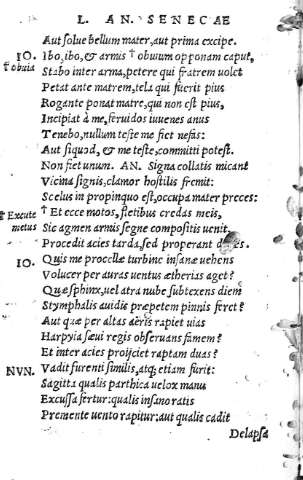 L. AN. SENECAE
Aut solue bellum mater, aut prima excipe.
IO. Ibo, ibo, & armis † obuium opponam caput,
† obuia Stabo inter arma, petere qui fratrem uolet
Petat ante matrem, tela qui fuerit pius
Rogante ponat matre, qui non est pius,
Incipiat à me, feruidos iuuenes anus
Tenebo, nullum teste me fiet nefas:
Aut siquod, & me teste, committi potest.
Non fiet unum. AN. Signa collatis micant
Vicina signis, clamor hostilis fremit:
Scelus in propinquo est, occupa mater preces:
† Excute † Et ecce motos, fletibus credas meis,
metus Sic agmen armis segne compositis uenit.
Procedit acies tarda, sed properant duces.
IO. Quis me procellæ turbine insanæ uehens
Volucer per auras uentus ætherias aget?
Quæ sphinx, uel atra nube subtexens diem
Stymphalis auidis præpetem pinnis feret?
Aut quæ per altas aëris rapiet uias
Harpyia sæui regis obseruans famem?
Et inter acies proijciet raptam duas?
NVN. Vadit furenti similis, atq; etiam furit:
Sagitta qualis parthica uelox manu
Excussa fertur: qualis insano ratis
Premente uento rapitur: aut qualis cadit
Delapsa